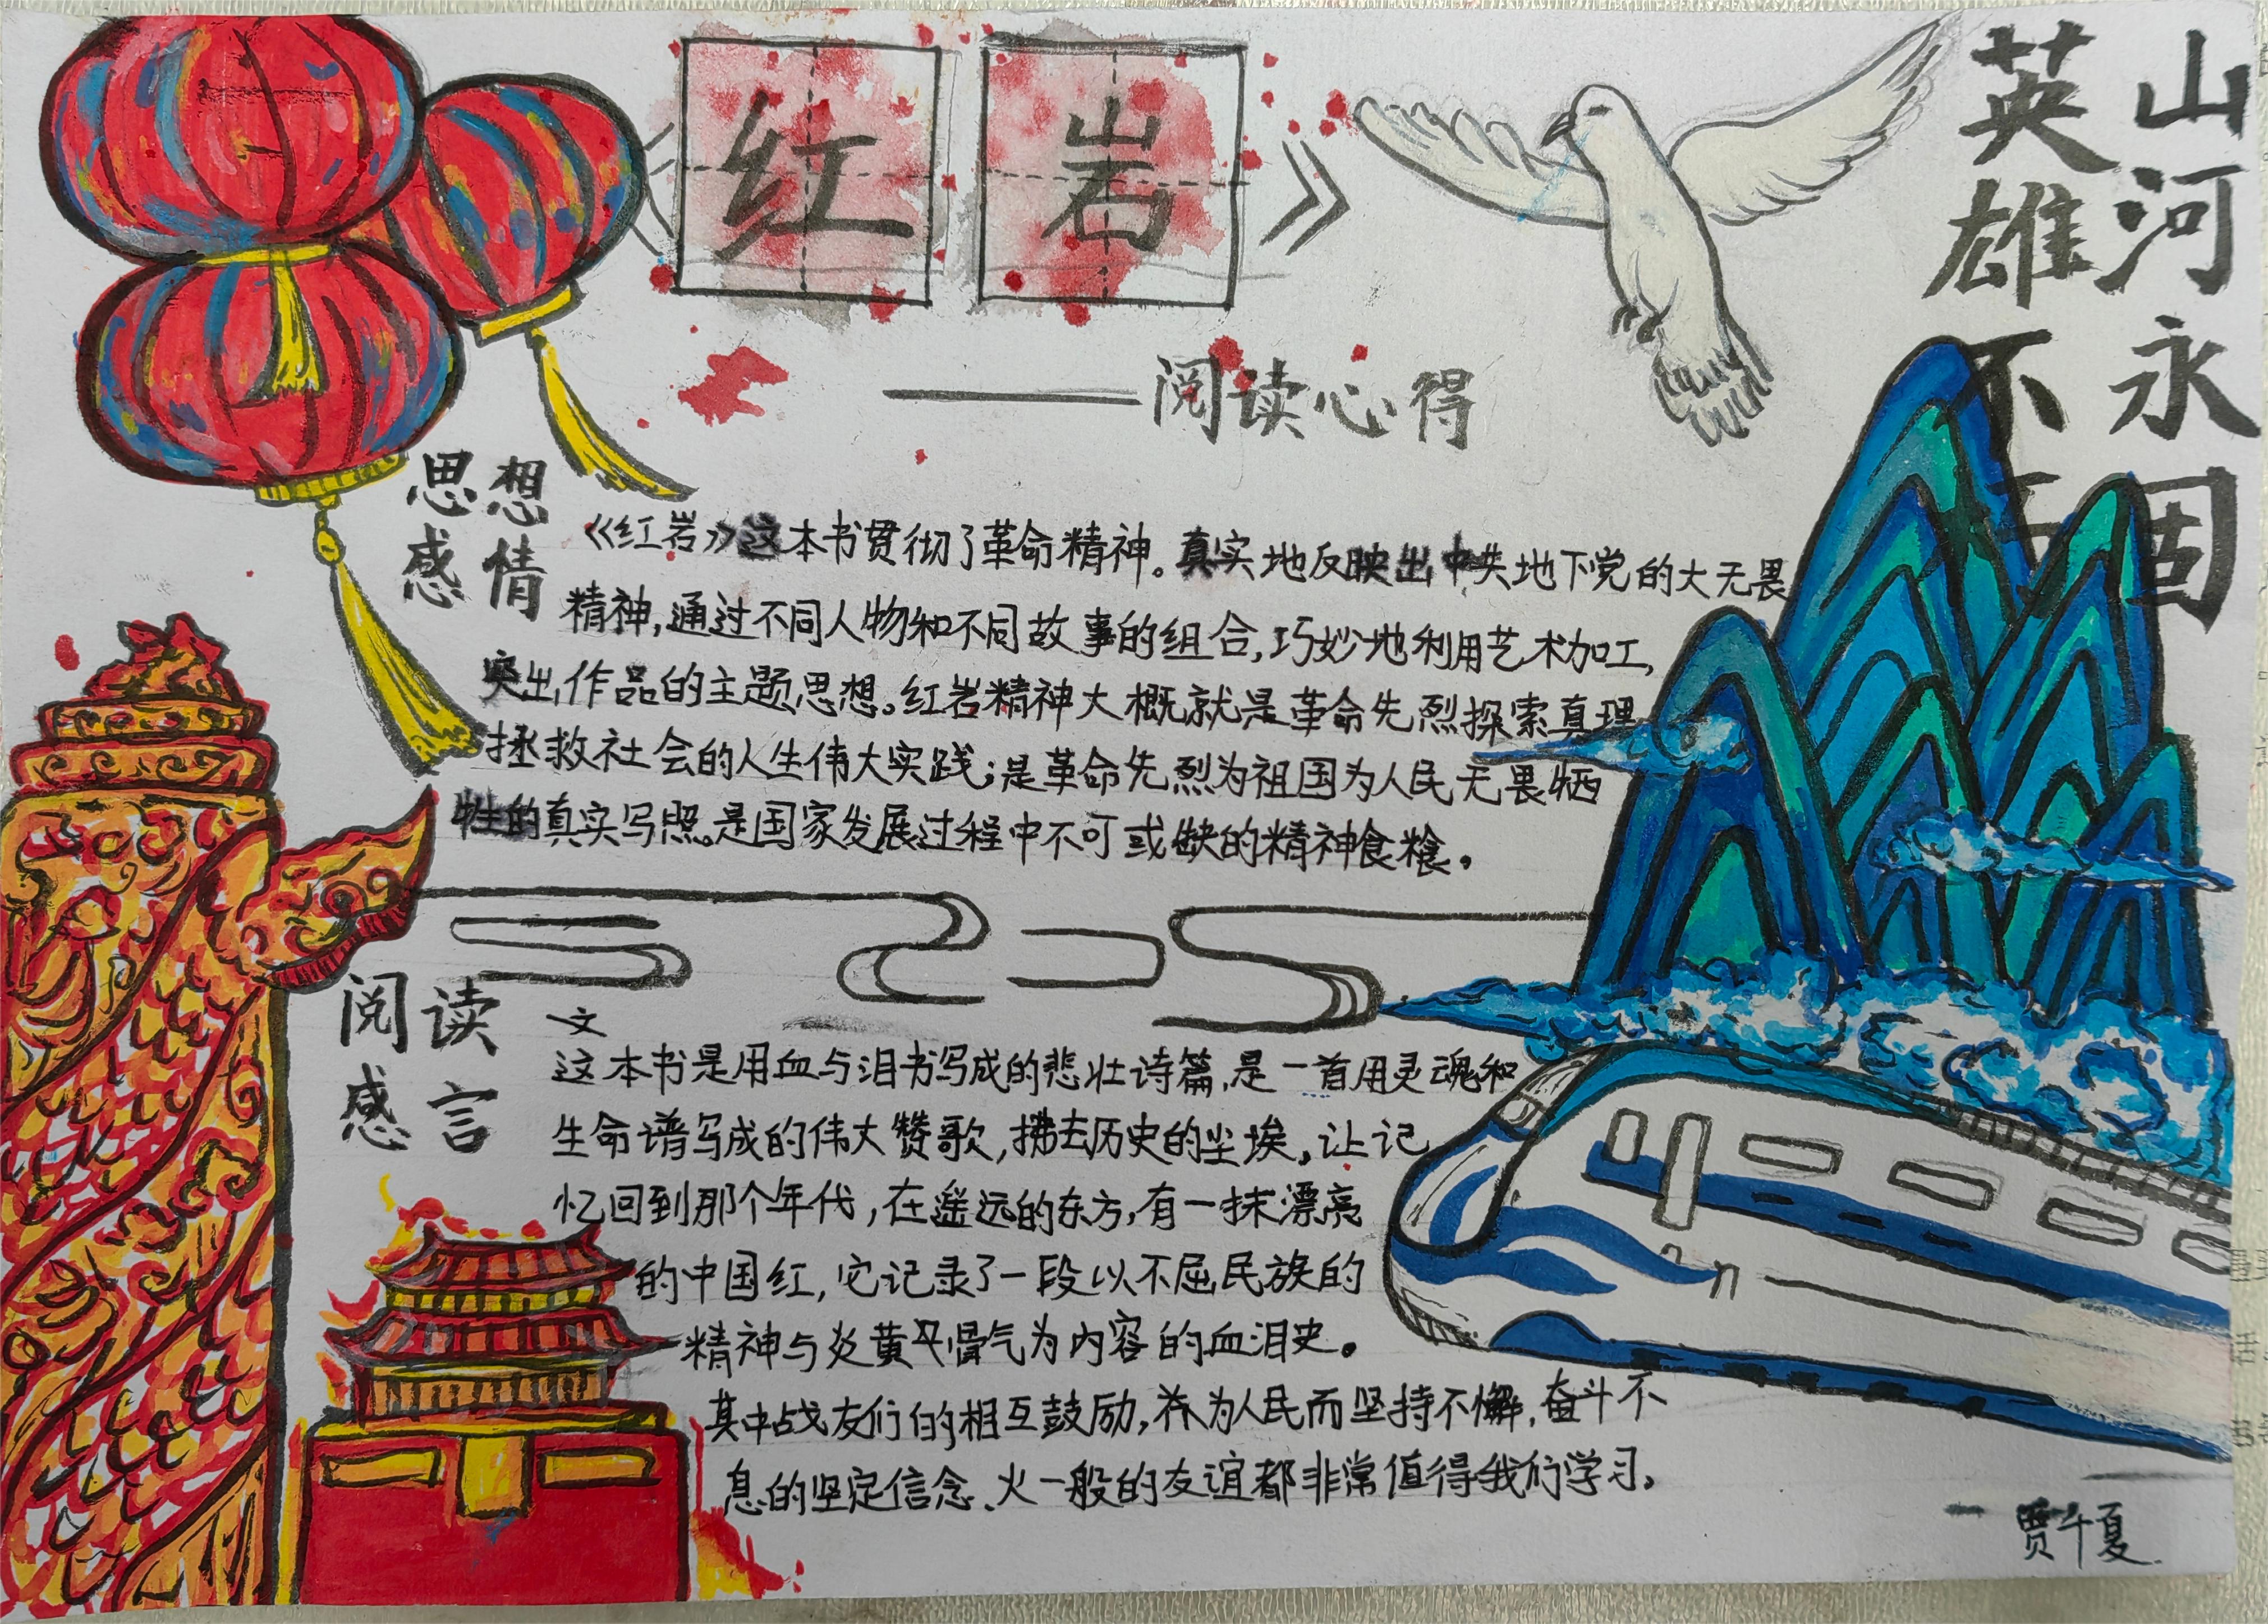 《红岩》
——阅读心得
山河永固
英雄不
思想
感情
《红岩》这本书贯彻了革命精神。真实地反映出中共地下党的大无畏
精神,通过不同人物和不同故事的组合,巧妙地利用艺术加工,
突出作品的主题思想。红岩精神大概就是革命先烈探索真理
拯救社会的人生伟大实践;是革命先烈为祖国为人民无畏牺
牲的真实写照。是国家发展过程中不可或缺的精神食粮。
阅读
感言
这本书是用血与泪书写成的悲壮诗篇,是一首用灵魂和
生命谱写成的伟大赞歌,拂去历史的尘埃,让记
忆回到那个年代,在遥远的东方,有一抹漂亮
的中国红,它记录了一段以不屈民族的
精神与炎黄骨气为内容的血泪史。
其中战友们的相互鼓励,为人民而坚持不懈,奋斗不
息的坚定信念、火一般的友谊都非常值得我们学习。
贾千夏